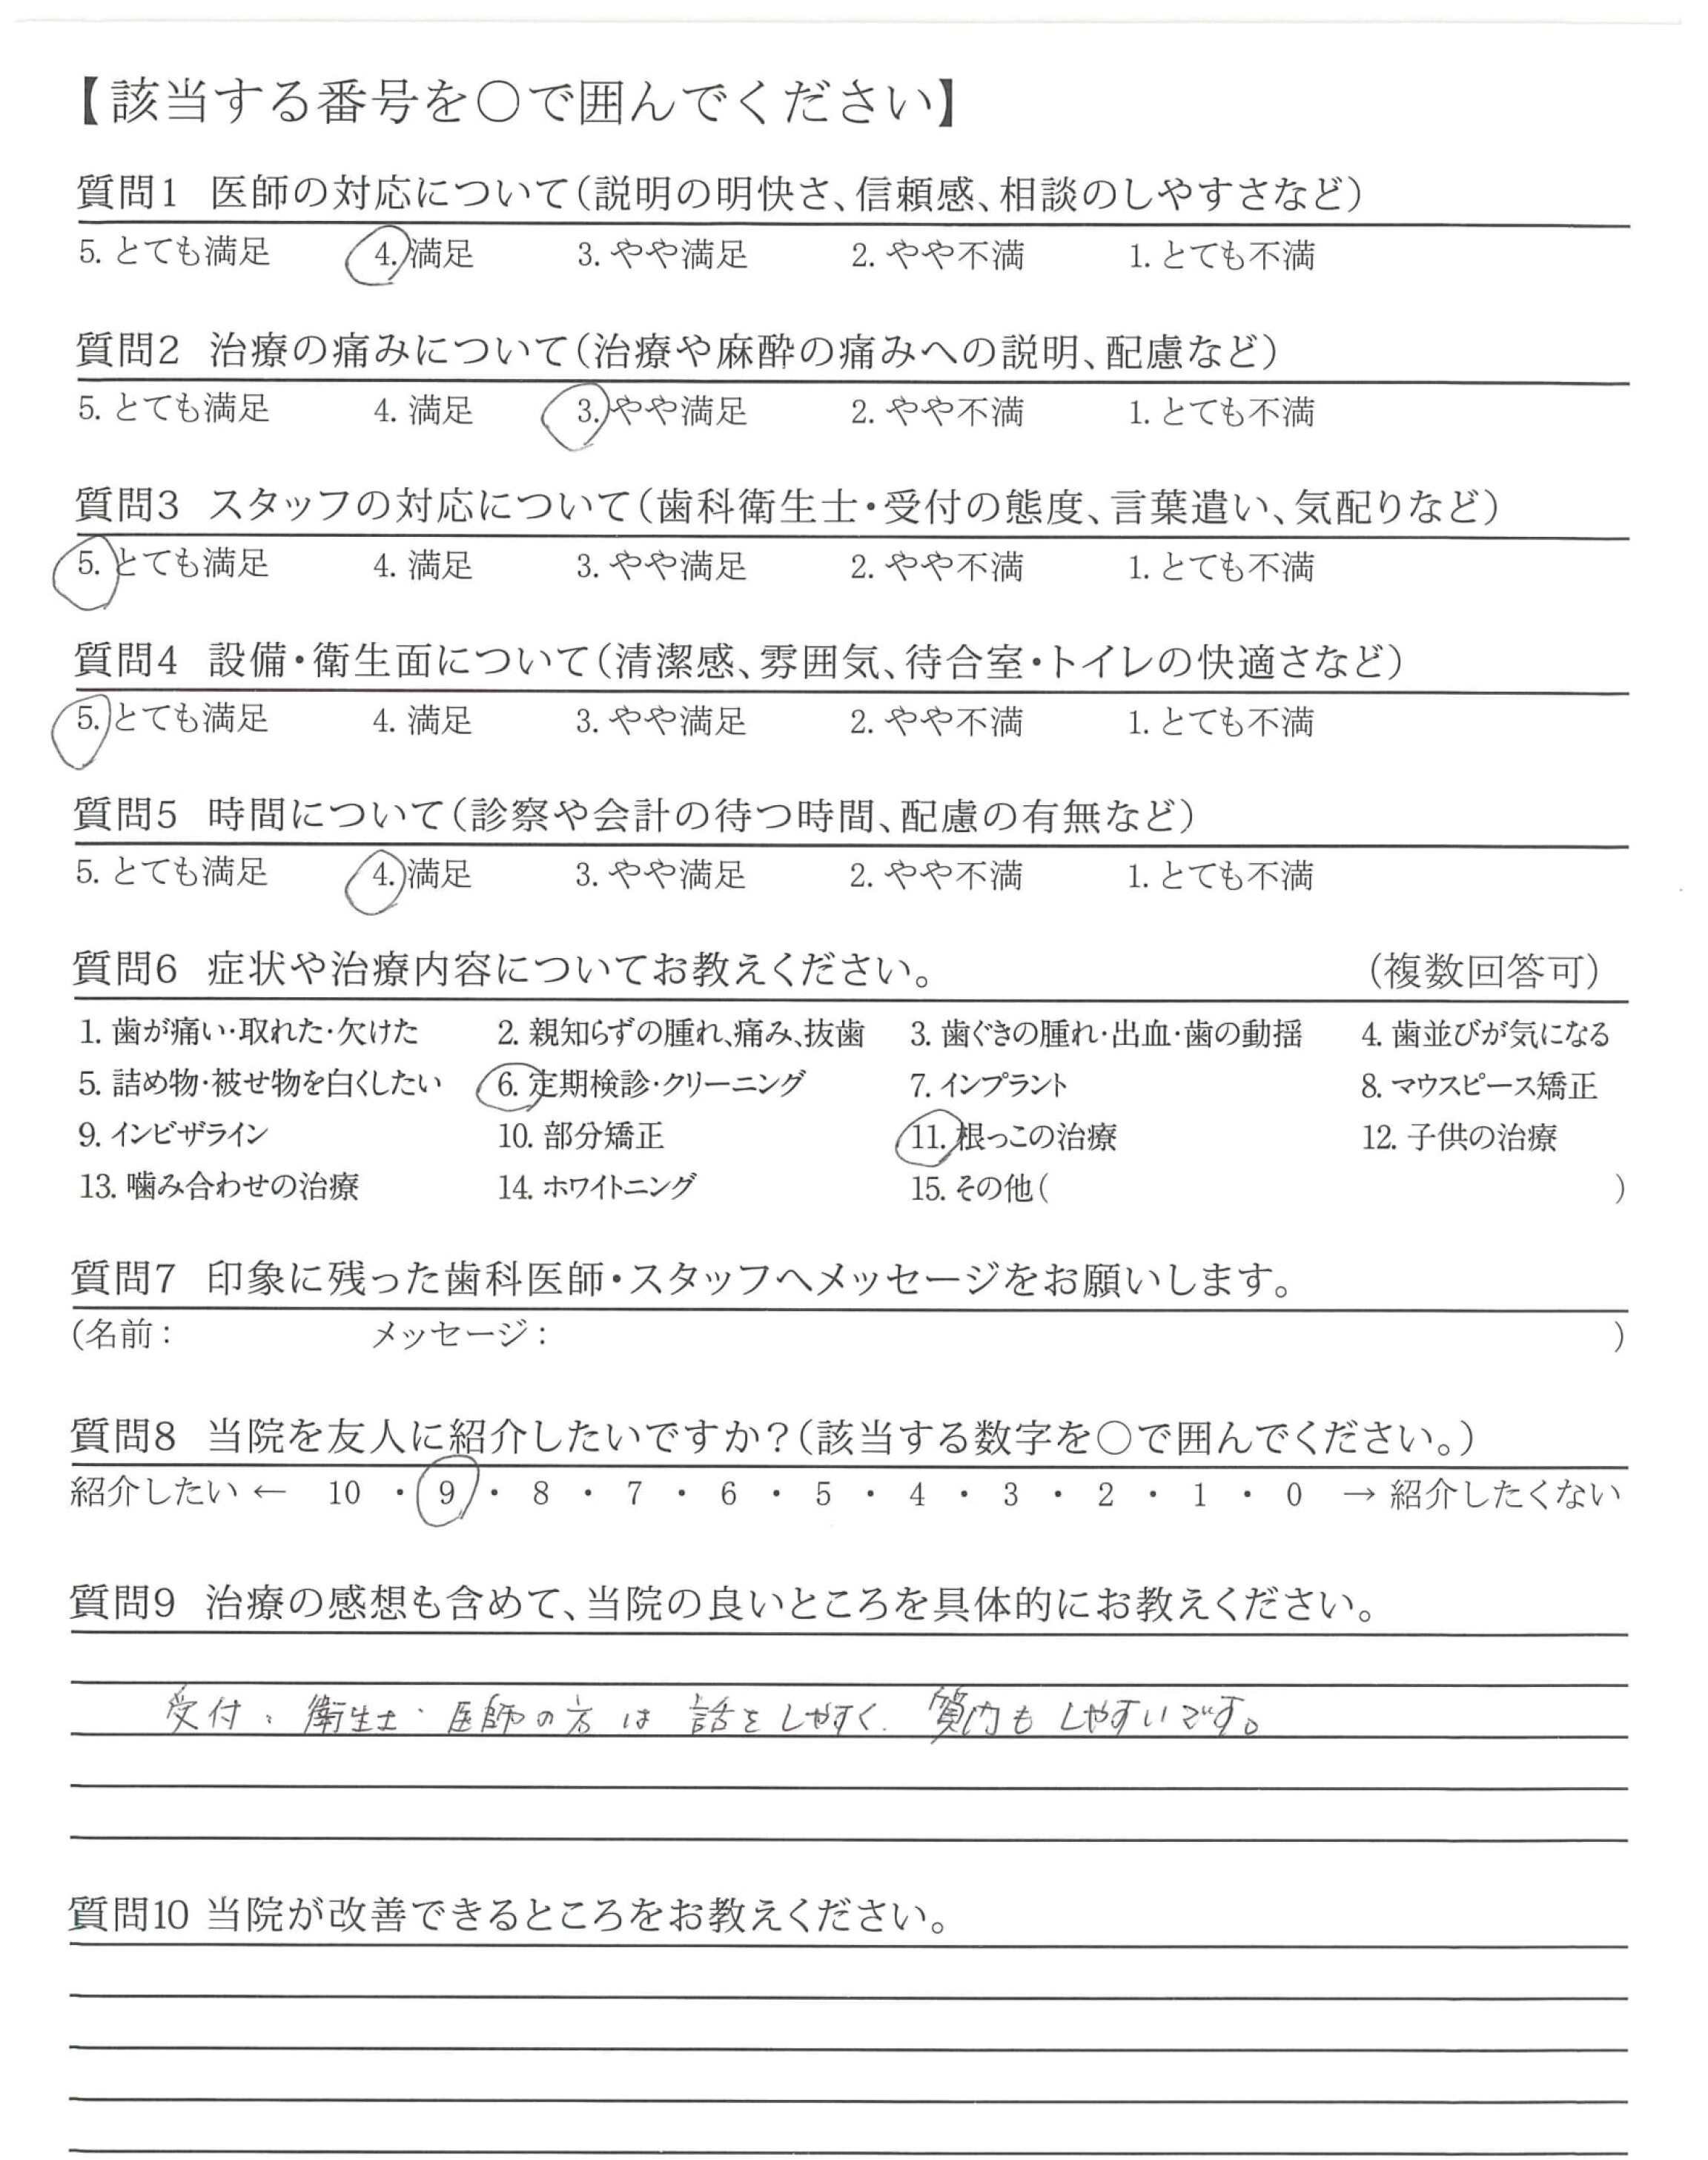 【該当する番号を〇で囲んでください】
質問1 医師の対応について(説明の明快さ、信頼感、相談のしやすさなど)
5. とても満足 4. 満足 3. やや満足 2. やや不満 1. とても不満
質問2 治療の痛みについて(治療や麻酔の痛みへの説明、配慮など)
5. とても満足 4. 満足 3. やや満足 2. やや不満 1. とても不満
質問3 スタッフの対応について(歯科衛生士・受付の態度、言葉遣い、気配りなど)
5. とても満足 4. 満足 3. やや満足 2. やや不満 1. とても不満
質問4 設備・衛生面について(清潔感、雰囲気、待合室・トイレの快適さなど)
5. とても満足 4. 満足 3. やや満足 2. やや不満 1. とても不満
質問5 時間について(診察や会計の待つ時間、配慮の有無など)
5. とても満足 4. 満足 3. やや満足 2. やや不満 1. とても不満
質問6 症状や治療内容についてお教えください。 (複数回答可)
1. 歯が痛い・取れた・欠けた 2. 親知らずの腫れ、痛み、抜歯 3. 歯ぐきの腫れ・出血・歯の動揺 4. 歯並びが気になる
5. 詰め物・被せ物を白くしたい 6. 定期検診・クリーニング 7. インプラント 8. マウスピース矯正
9. インビザライン 10. 部分矯正 11. 根っこの治療 12. 子供の治療
13. 噛み合わせの治療 14. ホワイトニング 15. その他( )
質問7 印象に残った歯科医師・スタッフへメッセージをお願いします。
(名前: メッセージ: )
質問8 当院を友人に紹介したいですか?(該当する数字を〇で囲んでください。)
紹介したい ← 10 ・ 9 ・ 8 ・ 7 ・ 6 ・ 5 ・ 4 ・ 3 ・ 2 ・ 1 ・ 0 → 紹介したくない
質問9 治療の感想も含めて、当院の良いところを具体的にお教えください。
受付、衛生士・医師の方は 話をしやすく、質問もしやすいです。
質問10 当院が改善できるところをお教えください。